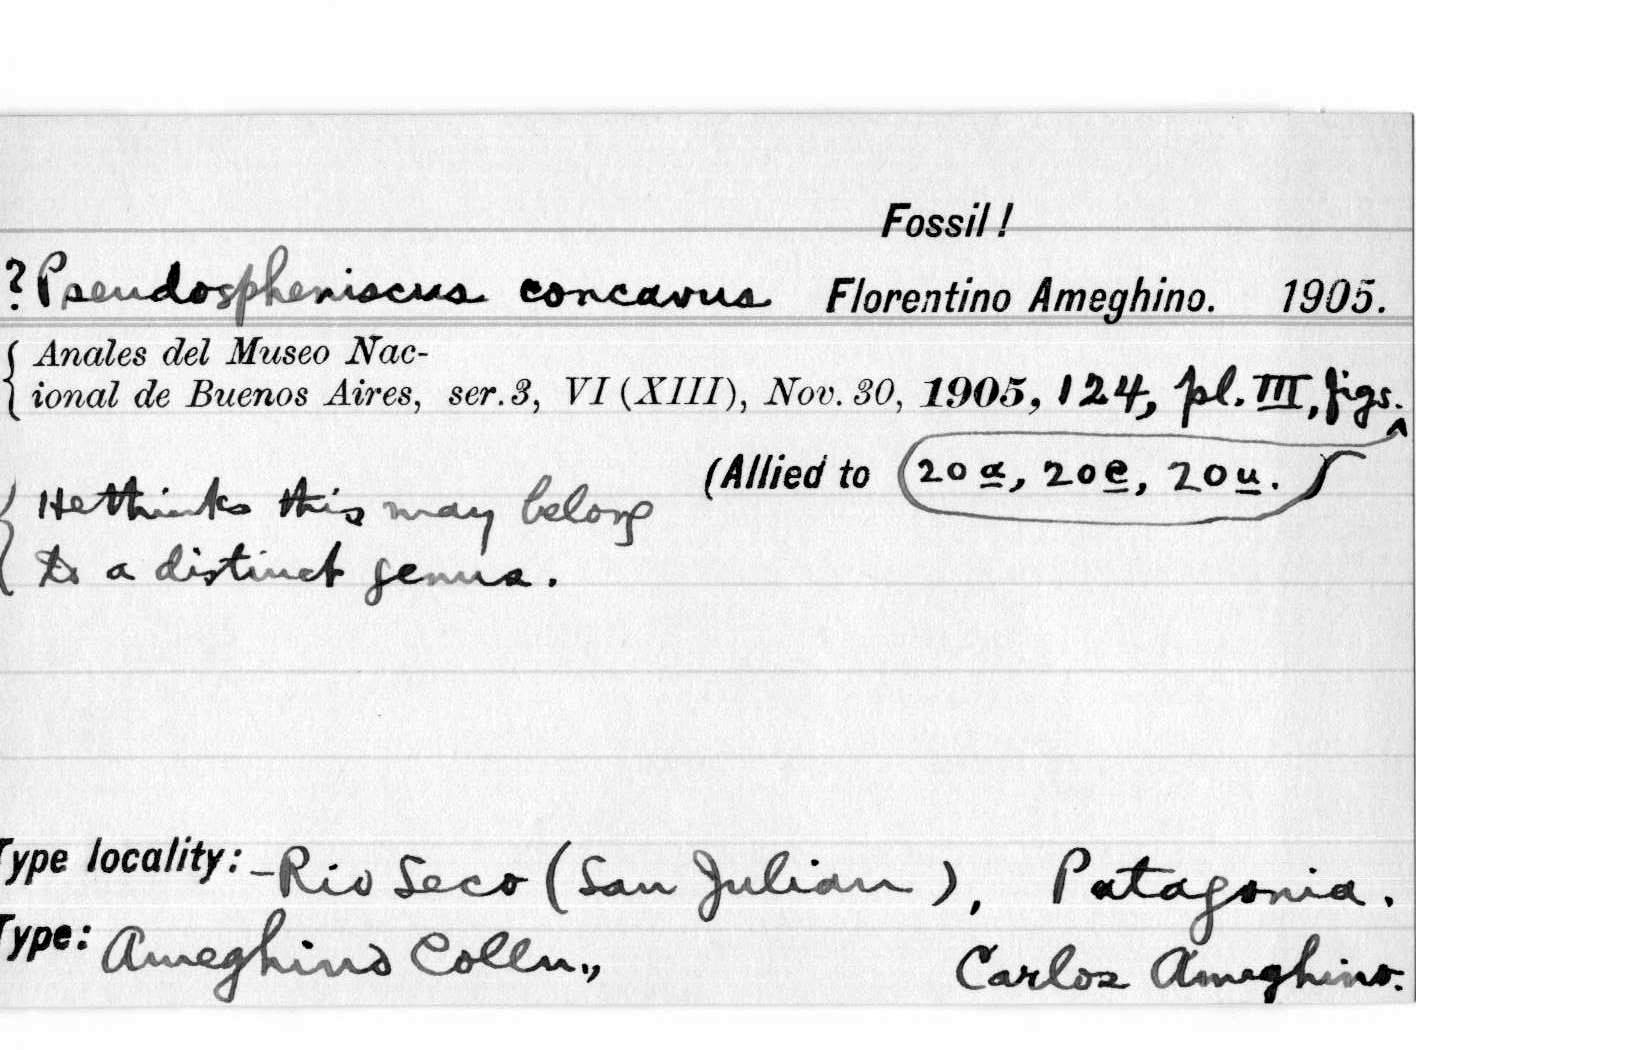 Fossil!
?Pseudospheniscus concavus Florentino Ameghino. 1905.
Anales del Museo Nac-
ional de Buenos Aires, ser. 3, VI (XIII), Nov. 30, 1905, 124, pl. III, figs.
(Allied to 20a, 20e, 20u.
He thinks this may belong
to a distinct genus.
Type locality: - Rio Seco (San Julian), Patagonia.
Type: Ameghino Colln., Carlos Ameghino.